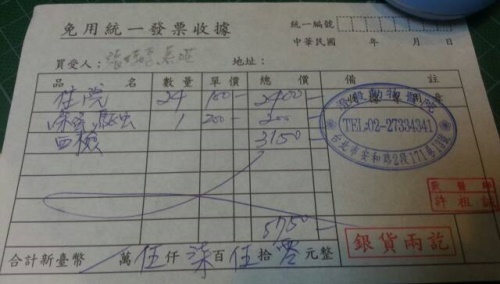 免用統一發票收據
統一編號
中華民國 年 月 日
買受人： 地址：
品名 數量 單價 總價 備註
住院 24 100 2400
1 200 200
血檢 3150
TEL:02-27334341
台北市安和路2段171號
5750
銀貨兩訖
合計新臺幣 萬伍仟柒百伍拾零元整